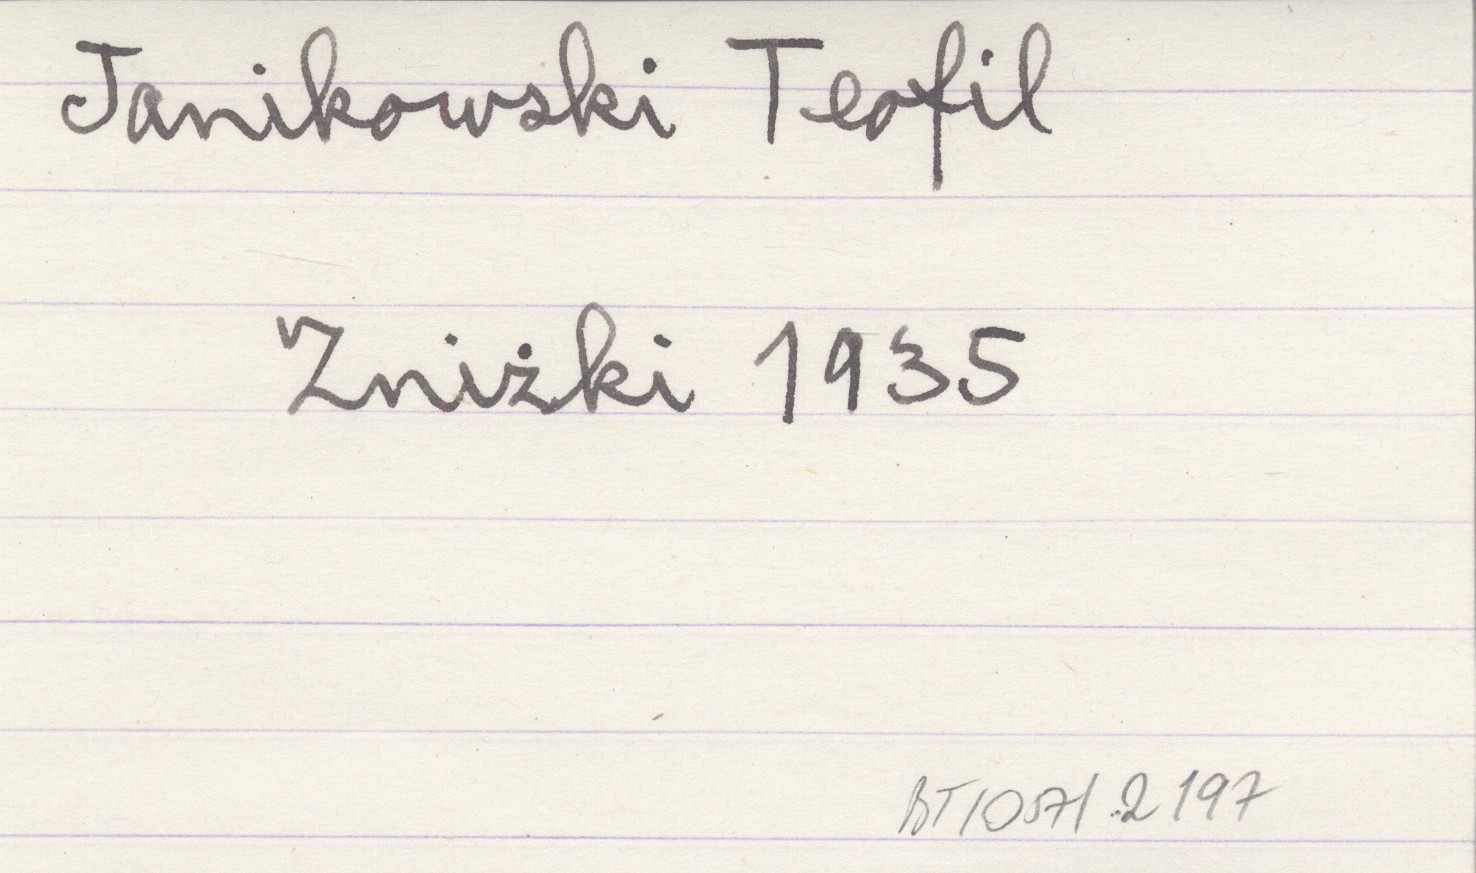 Janikowski Teofil
Zniżki 1935
BT/057/2197